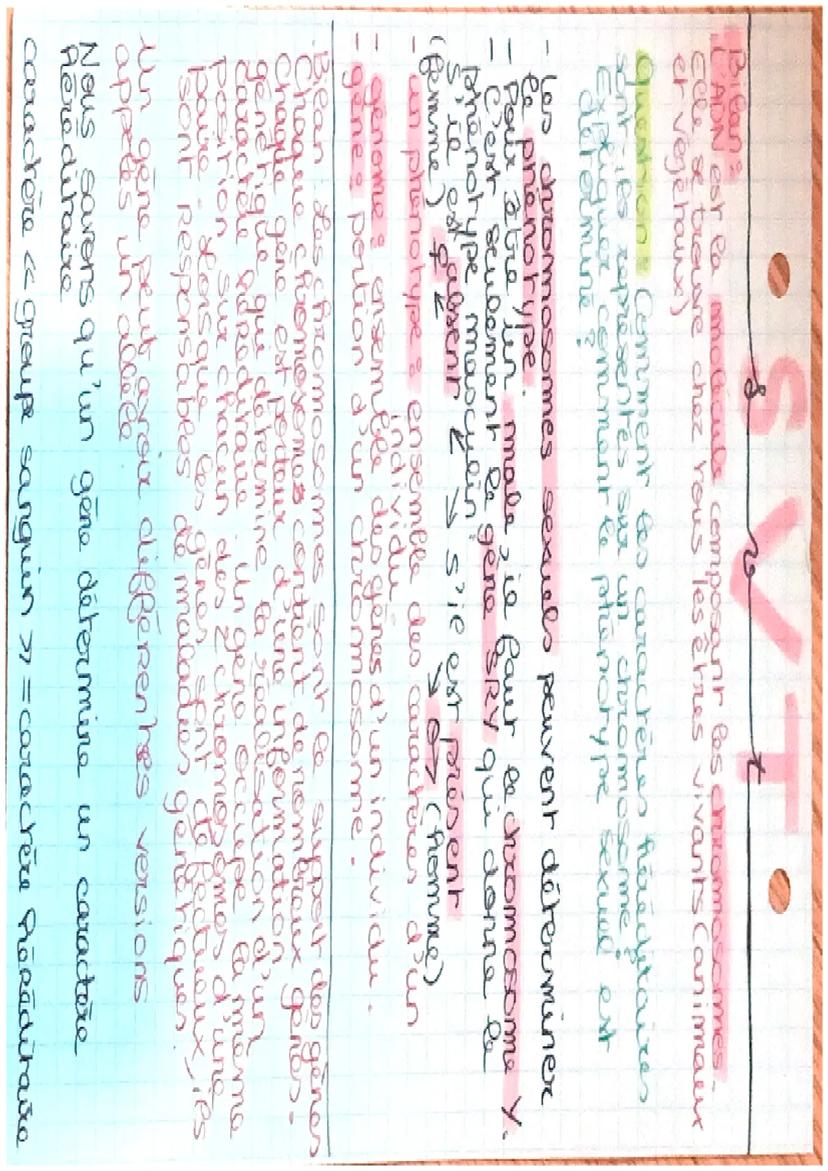 SVT
Bilan :
L'ADN est la molécule composant les chromosomes.
Elle se trouve chez tous les êtres vivants (animaux
et végétaux)
Question : Comment les caractères héréditaires
sont-ils représentés sur un chromosome ?
Expliquer comment le phénotype sexuel est
déterminé ?
- Les chromosomes sexuels peuvent déterminer
le phénotype.
- Pour être un male, il faut le chromosome y.
- C'est seulement le gène SRY qui donne le
phénotype masculin
s'il est absent ↙ ↘ s'il est présent
(femme) ♀ ↙ ↘ ♂ (homme)
- un phénotype : ensemble des caractères d'un
individu
- genome : ensemble des gènes d'un individu.
- gène : portion d'un chromosome.
Bilan : Les chromosomes sont le support des gènes
Chaque chromosomes contient de nombreux gènes.
Chaque gène est porteur d'une information
génétique qui détermine la réalisation d'un
caractère héréditaire. Un gène occupe la même
position sur chacun des 2 chromosomes d'une
paire. Lorsque les gènes sont défectueux, ils
sont responsables de maladies génétiques.
Un gène peut avoir différentes versions
appelés un allèle
Nous savons qu'un gène détermine un caractère
héréditaire
caractère << groupe sanguin >> = caractère héréditaire